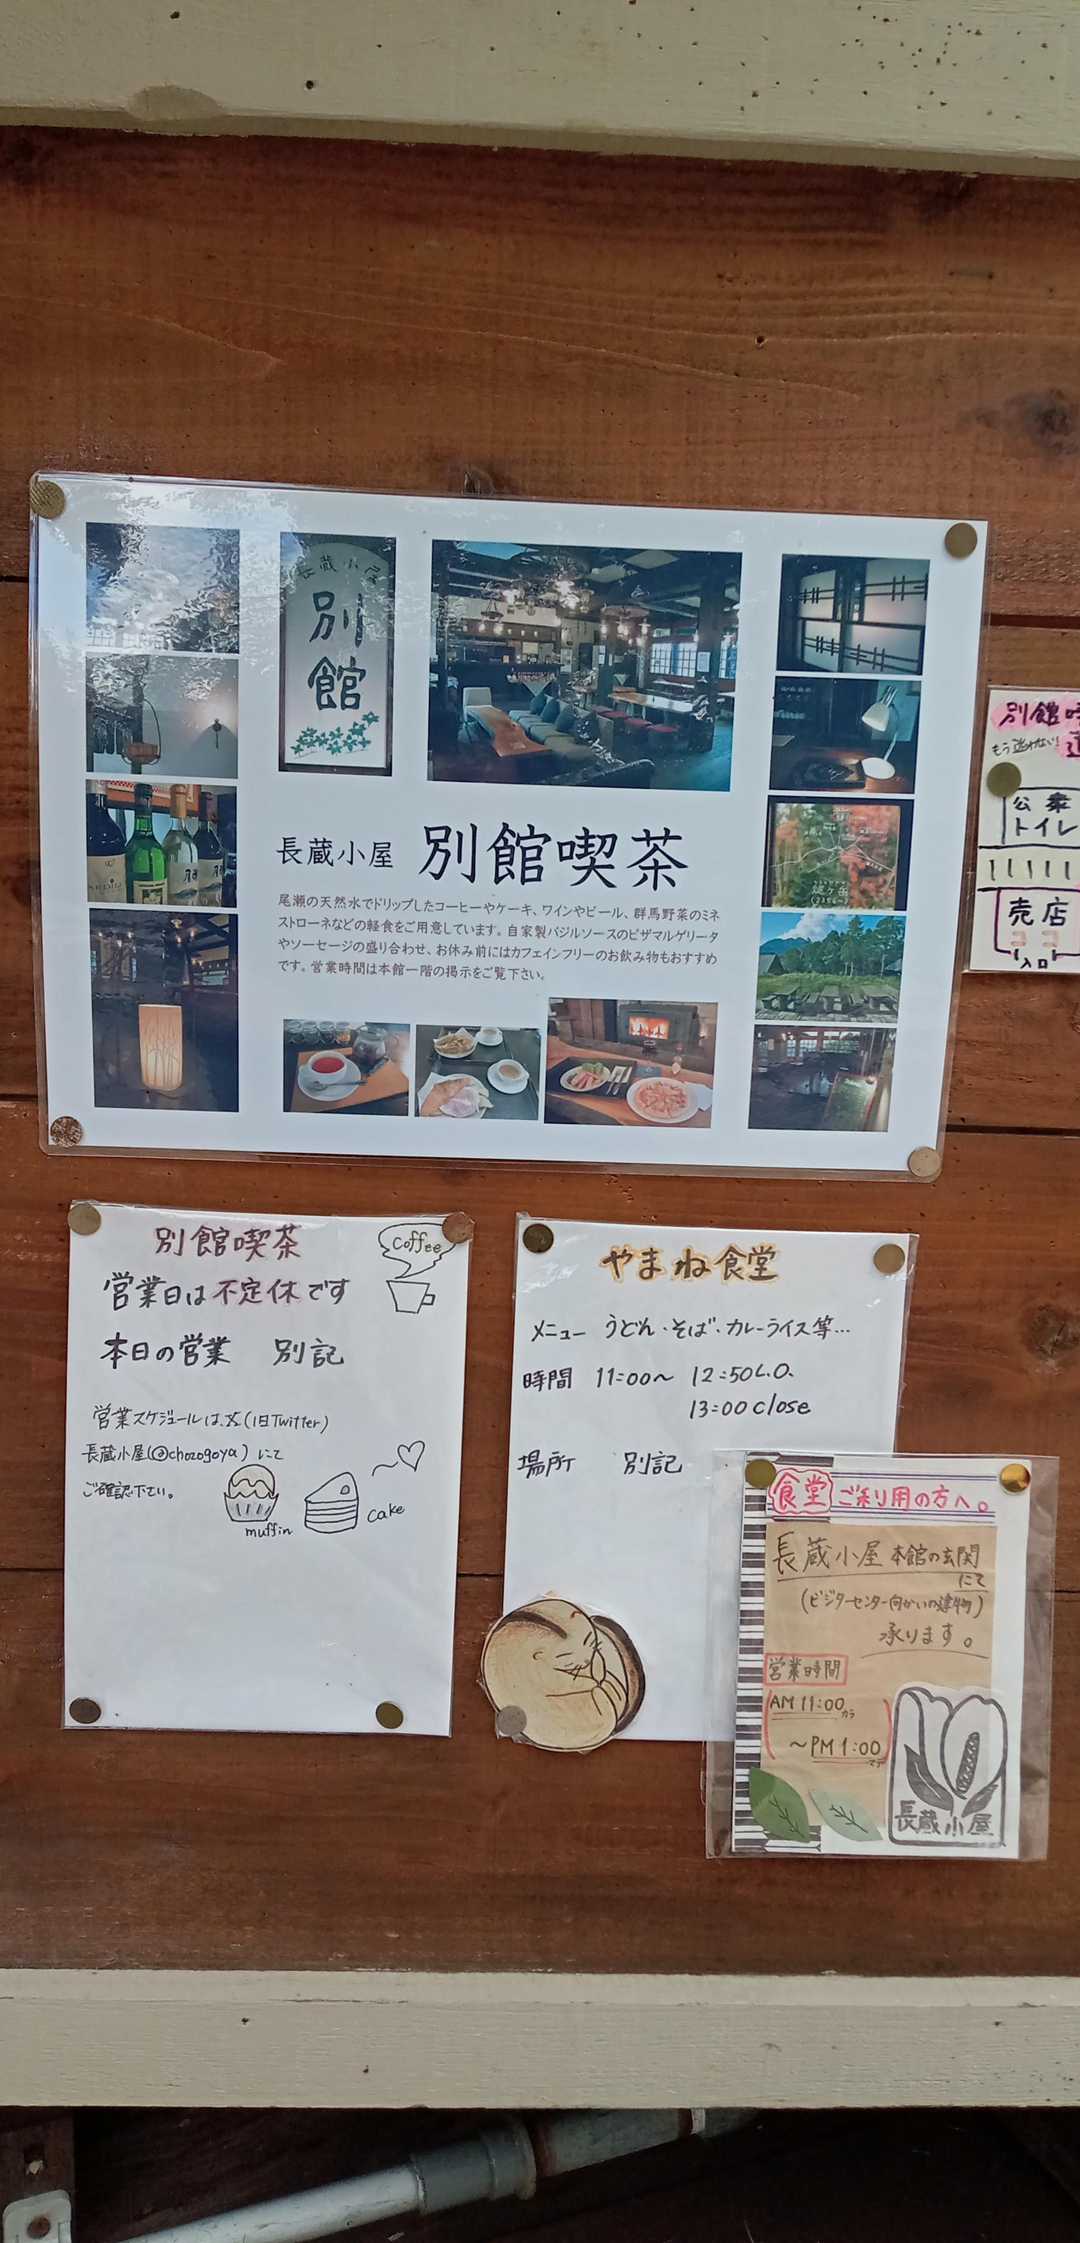 長蔵小屋
別館
長蔵小屋 別館喫茶
尾瀬の天然水でドリップしたコーヒーやケーキ、ワインやビール、群馬野菜のミネ
ストローネなどの軽食をご用意しています。自家製バジルソースのピザマルゲリータ
やソーセージの盛り合わせ、お休み前にはカフェインフリーのお飲み物もおすすめ
です。営業時間は本館一階の掲示をご覧下さい。
別館喫茶
coffee
営業日は不定休です
本日の営業 別記
営業スケジュールは、X(旧Twitter)
長蔵小屋(@chozogoya)にて
ご確認下さい。
muffin
cake
やまね食堂
メニュー うどん・そば・カレーライス等…
時間 11:00〜 12:50L.O.
13:00 close
場所 別記
食堂ご利用の方へ。
長蔵小屋 本館の玄関
にて
(ビジターセンター向かいの建物)
承ります。
営業時間
AM 11:00から
〜PM 1:00まで
長蔵小屋
別館
もう迷わない!
公衆
トイレ
売店
入口